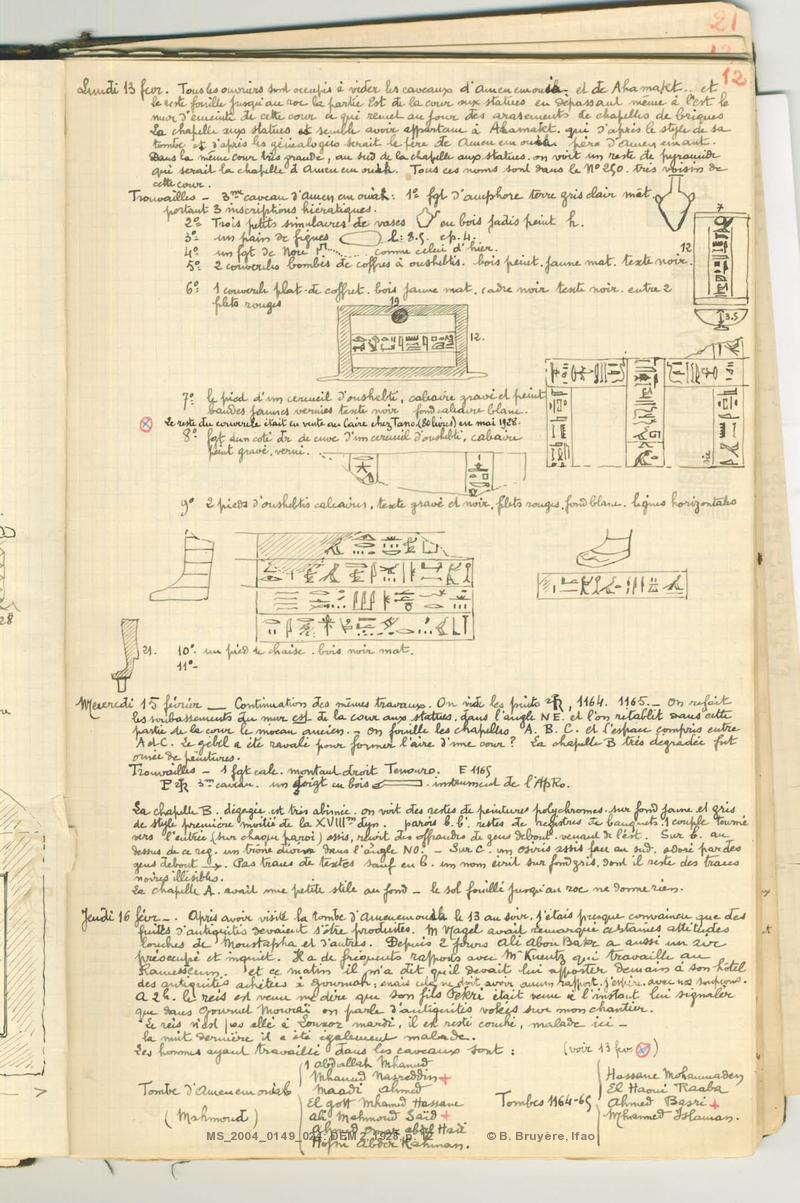 21
12
Lundi 13 fevr. Tous les ouvriers sont occupés à vider les caveaux d'Amenemouia et de Ahamakt.. et
le reste fouille jusqu'au roc la partie Est de la cour aux statues en dépassant même à l'est le
mur d'enceinte de cette cour ce qui remet au jour des arasements de chapelles de briques
La chapelle aux statues semble avoir appartenu à Ahamakt. qui d'après le style de sa
tombe et d'après les généalogies serait le père de Amenemouia père d'Amenemant.
Dans la même cour très grande, au sud de la chapelle aux statues. on voit un reste de pyramide
qui serait la chapelle d'Amenemouia. Tous ces noms sont dans le N° 250. très voisin de
cette cour.
Trouvailles - 3me caveau d'Amenemouia: 1° fgt d'amphore terre gris clair mat
portant 3 inscriptions hiératiques.
2° Trois petits simulacres de vases en bois jadis peint h.
3° un pain de figues l: 8.5. ep. 4.
4° un fgt de comme celui d'hier.
5° 2 couvercles bombés de coffres à oushebtis. bois peint. jaune mat. texte noir.
7
12
3.5
6° 1 couvercle plat de coffret. bois jaune mat. cadre noir texte noir. entre 2
filets rouges
19
12.
7° le pied d'un cercueil d'oushebti, calcaire gravé et peint
bandes jaunes vernies texte noir fond calcaire blanc.
Le reste du couvercle était en vente au Caire chez Tano. (80 livres) en mai 1928.
8° fgt d'un coté dr de cuve d'un cercueil d'oushebti, calcaire
peint gravé, verni.
sic
9° 2 pieds d'oushebtis calcaires, texte gravé et noir, filets rouges, fond blanc. lignes horizontales
21.
10° un pied de chaise. bois noir mat.
11°-
28
Mercredi 15 février — Continuation des mêmes travaux. On vide les puits 1164. 1165. — On refait
les soubassements du mur est de la cour aux statues, dans l'angle NE. et l'on rétablit dans cette
partie de la cour le niveau ancien. - on fouille les chapelles A. B. C. et l'espace compris entre
A et C. Le gebel a été ravalé pour former l'aire d'une cour? La chapelle B très dégradée fut
ornée de peintures.
Trouvailles - 1 fgt calc. montant droit Tenouro. E 1165
3me caveau. un doigt en bois instrument de l'ApRo.
La chapelle B. dégagée est très abimée. on voit des restes de peintures polychromes. sur fond jaune et gris
de style première moitié de la XVIIIme dyn. parois b. b'. restes de registres de banquets 1 couple tourné
vers l'entrée (sur chaque paroi) assis, reçoit des offrandes de gens debout. venant de l'est. Sur b. au
dessus de ce reg. un trône dans l'angle NO. - Sur C. un osiris assis face au sud. adoré par des
gens debout. Pas traces de textes sauf en b. un nom écrit sur fond gris, dont il reste des traces
noires illisibles.
La chapelle A. avait une petite stèle au fond - le sol fouillé jusqu'au roc ne donne rien.
Jeudi 16 févr. - Après avoir visité la tombe d'Amenemouia le 13 au soir. j'étais presque convaincu que des
fuites d'antiquités devaient s'être produites. M Nagel avait remarqué certaines attitudes
louches de Moustapha et d'autres. Depuis 2 jours Ali Abou Bakr a aussi un air
préoccupé et inquiet. Il a de fréquents rapports avec Mr Kuentz qui travaille au
Ramesseum. et ce matin il m'a dit qu'il devait lui apporter demain à son hôtel
des antiquités achetées à Gournah; mais cela ne doit avoir aucun rapport, j'espère, avec nos soupçons.
A 2h. le reis est venu me dire que son fils Fekri était venu à l'instant lui signaler
que dans Gournet Mouraï on parle d'antiquités volées sur mon chantier.
Le reis n'est pas allé à Louxor mardi, il est resté couché, malade ici —
la nuit dernière il a été également malade.
Les hommes ayant travaillé dans les caveaux sont : (voir 13 fevr )
Tombe d'Amenemouia
(Mahmoud)
1 Abdallah Mhamed
Mhamed Nasreddin +
Maadi Ahmed
El gott Mhamed Hassane
Ali Mahmoud Saïd +
Ahmed Omar abdel Hadi
Hofni Abder Rahman.
Tombes 1164-65
Hassane Mohammaden
El Haoui Raaba
Ahmed Basri +
Mhamed Islaman.
MS_2004_0149_024. DEM 2, 1928, p. 12
© B. Bruyère, Ifao